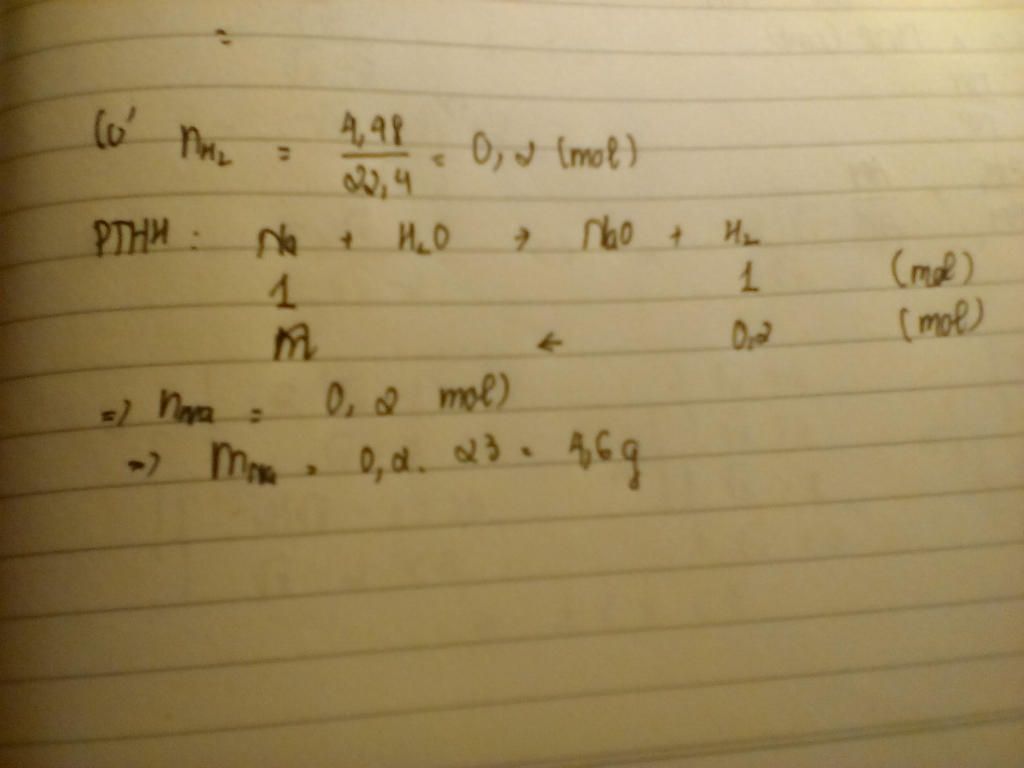 =
Có n_H₂ = 4,48/22,4 = 0,2 (mol)
PTHH : Na + H₂O → NaO + H₂
1 1 (mol)
m ← 0,2 (mol)
=> n_Na = 0,2 mol)
=> m_Na = 0,2. 23 = 4,6g